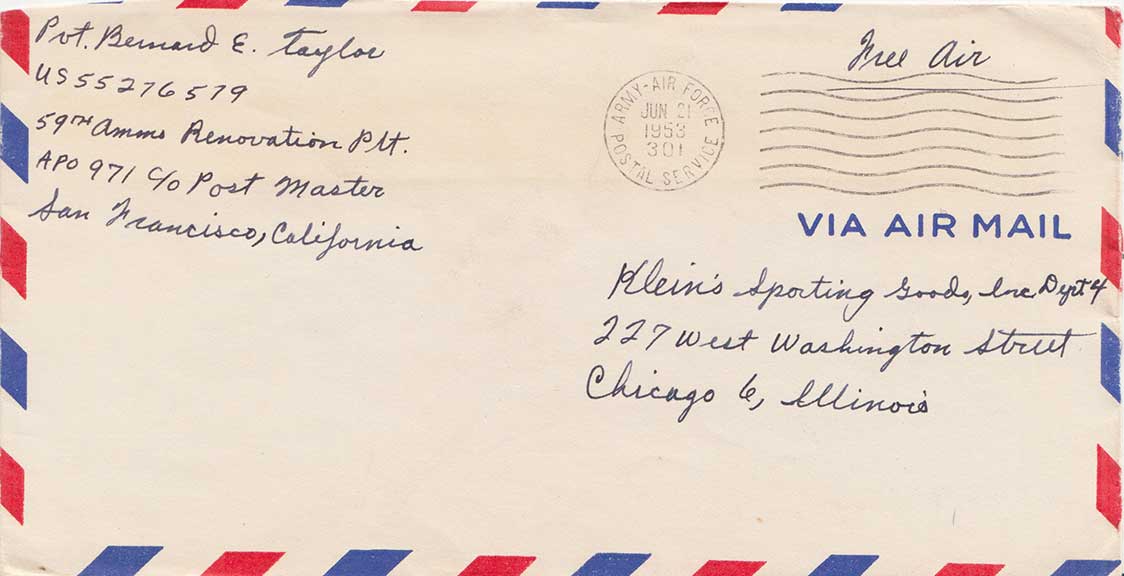 Pvt. Bernard E. Taylor
US 55276579
59TH Ammo Renovation Plt.
APO 971 c/o Post Master
San Francisco, California
Free Air
ARMY-AIR FORCE
JUN 21
1953
301
POSTAL SERVICE
VIA AIR MAIL
Klein's Sporting Goods, Inc. Dept 4
227 West Washington Street
Chicago 6, Illinois